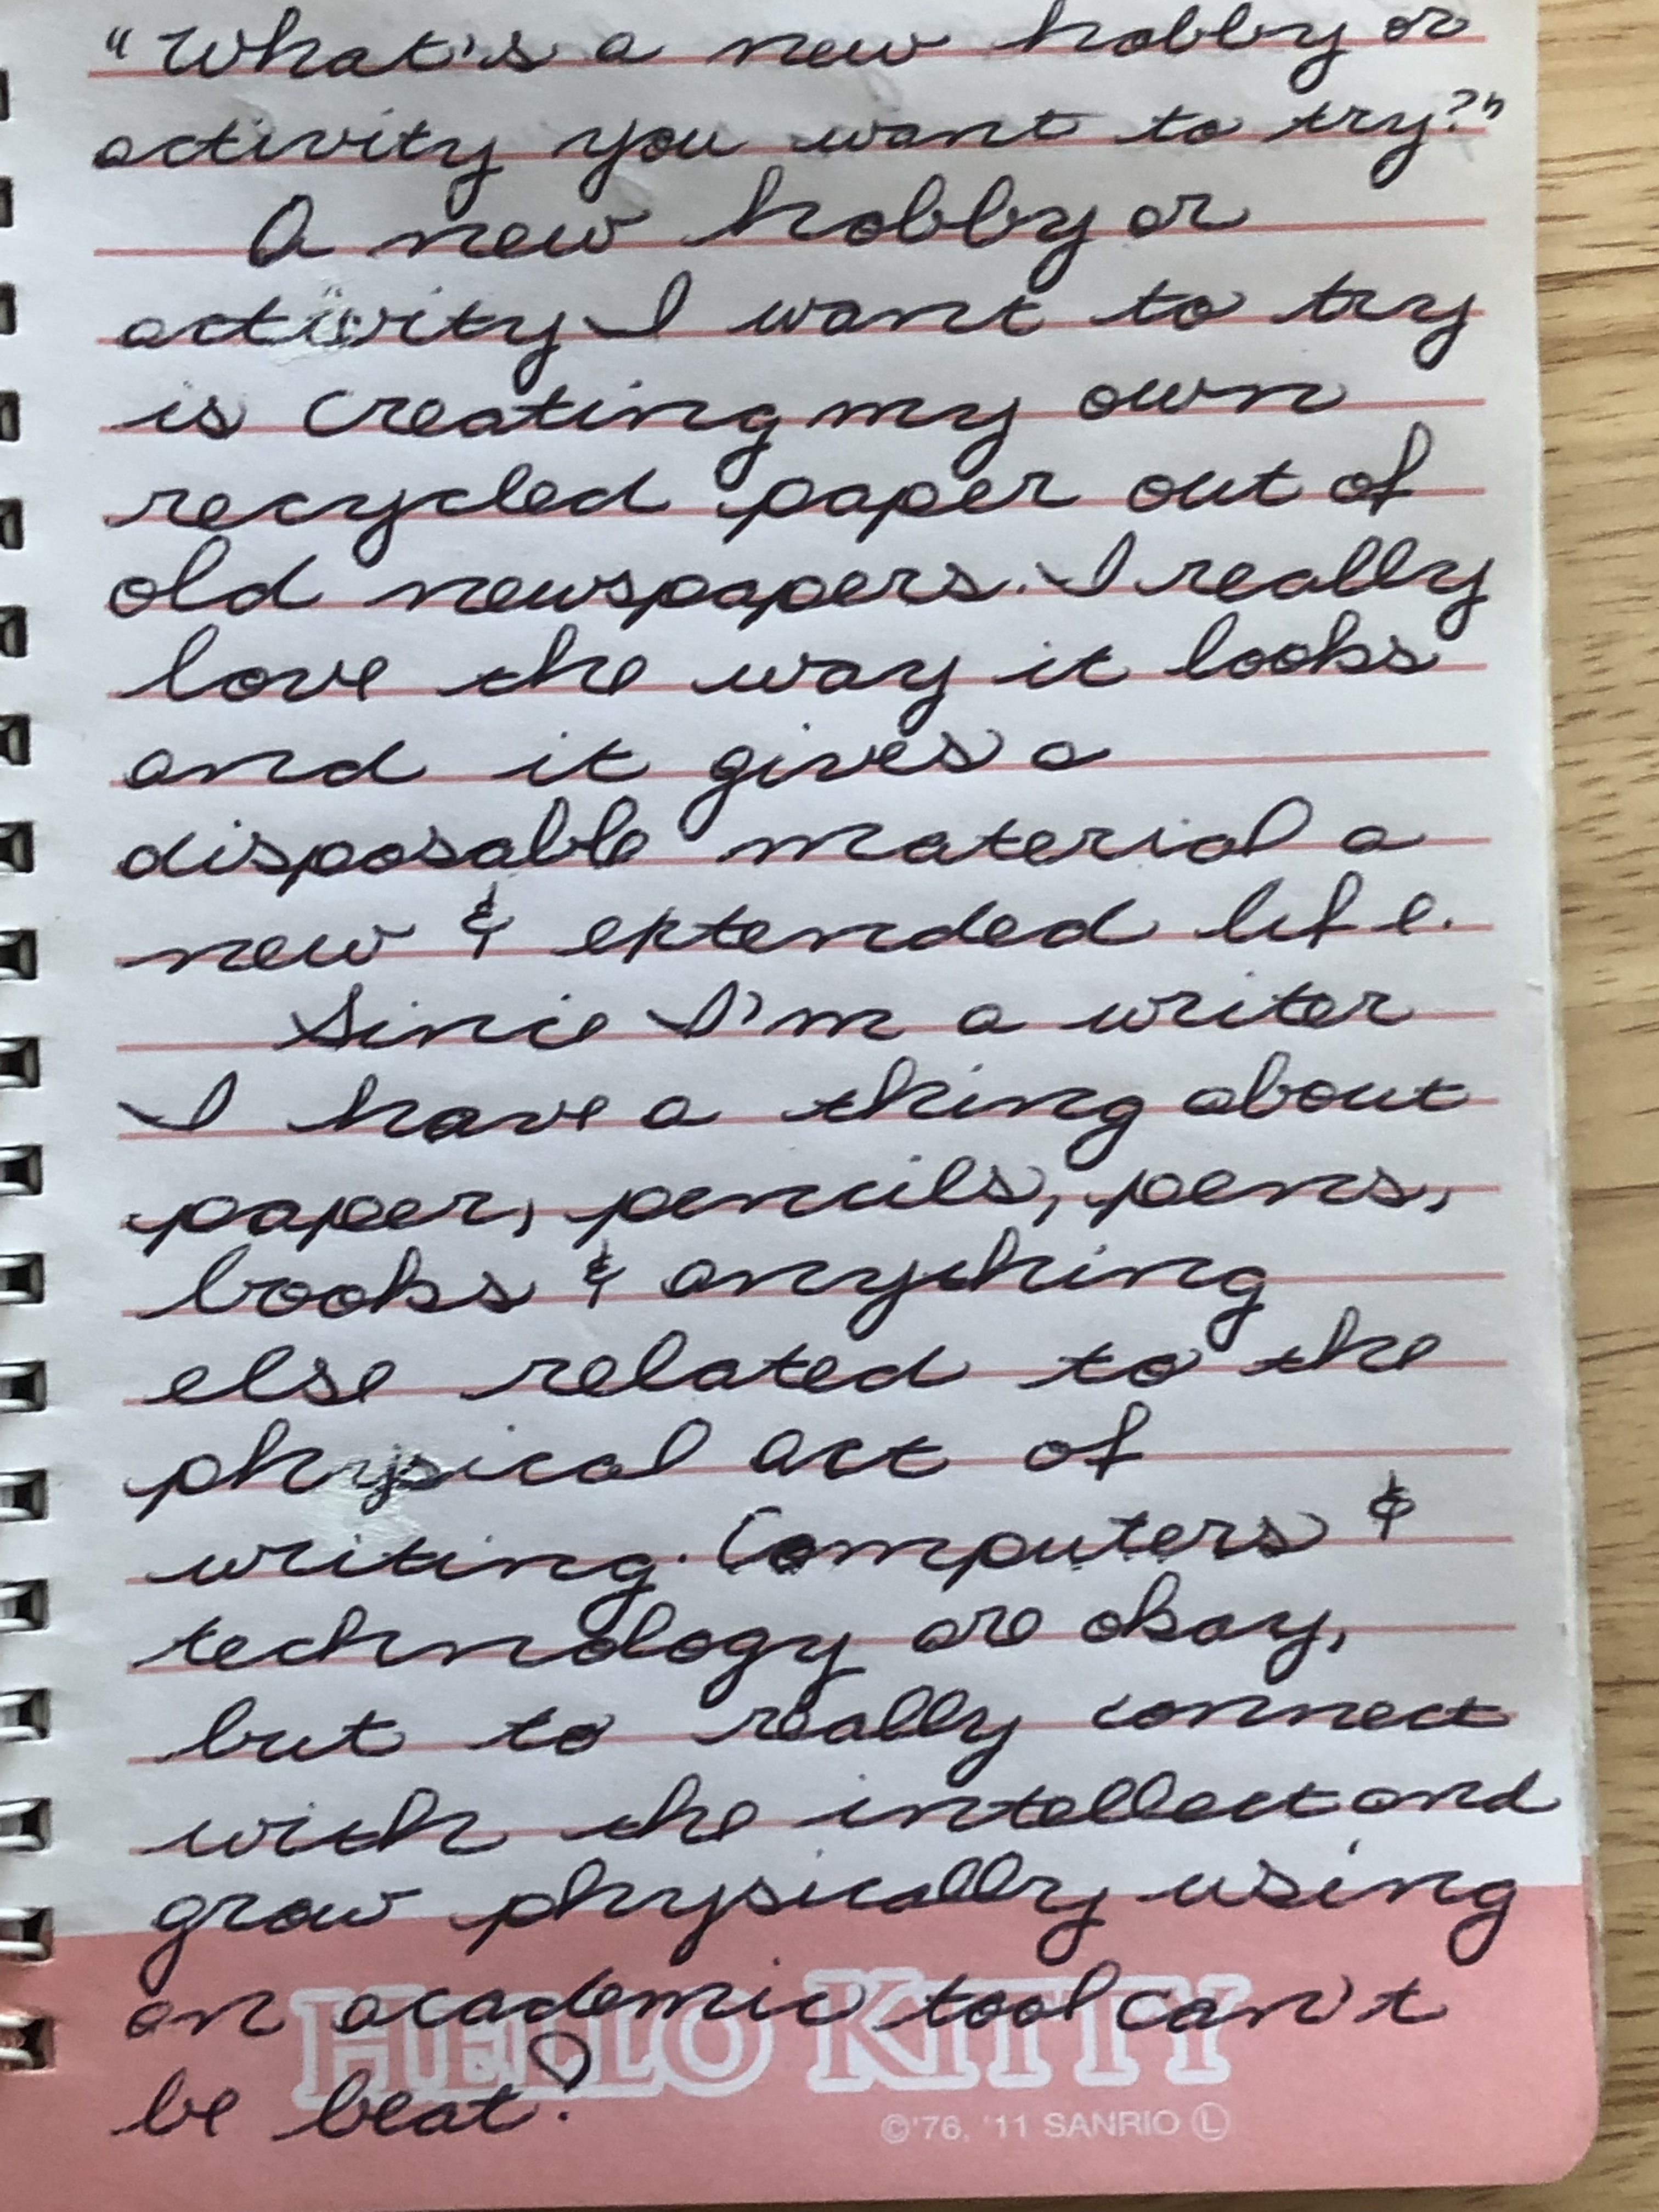 "What's a new hobby or
activity you want to try?"
A new hobby or
activity I want to try
is creating my own
recycled paper out of
old newspapers. I really
love the way it looks
and it gives a
disposable material a
new & extended life.
Since I'm a writer
I have a thing about
paper, pencils, pens,
books & anything
else related to the
physical act of
writing. Computers &
technology are okay,
but to really connect
with the intellect and
grow physically using
an academic tool can't
be beat!
HELLO KITTY
©'76, '11 SANRIO Ⓛ